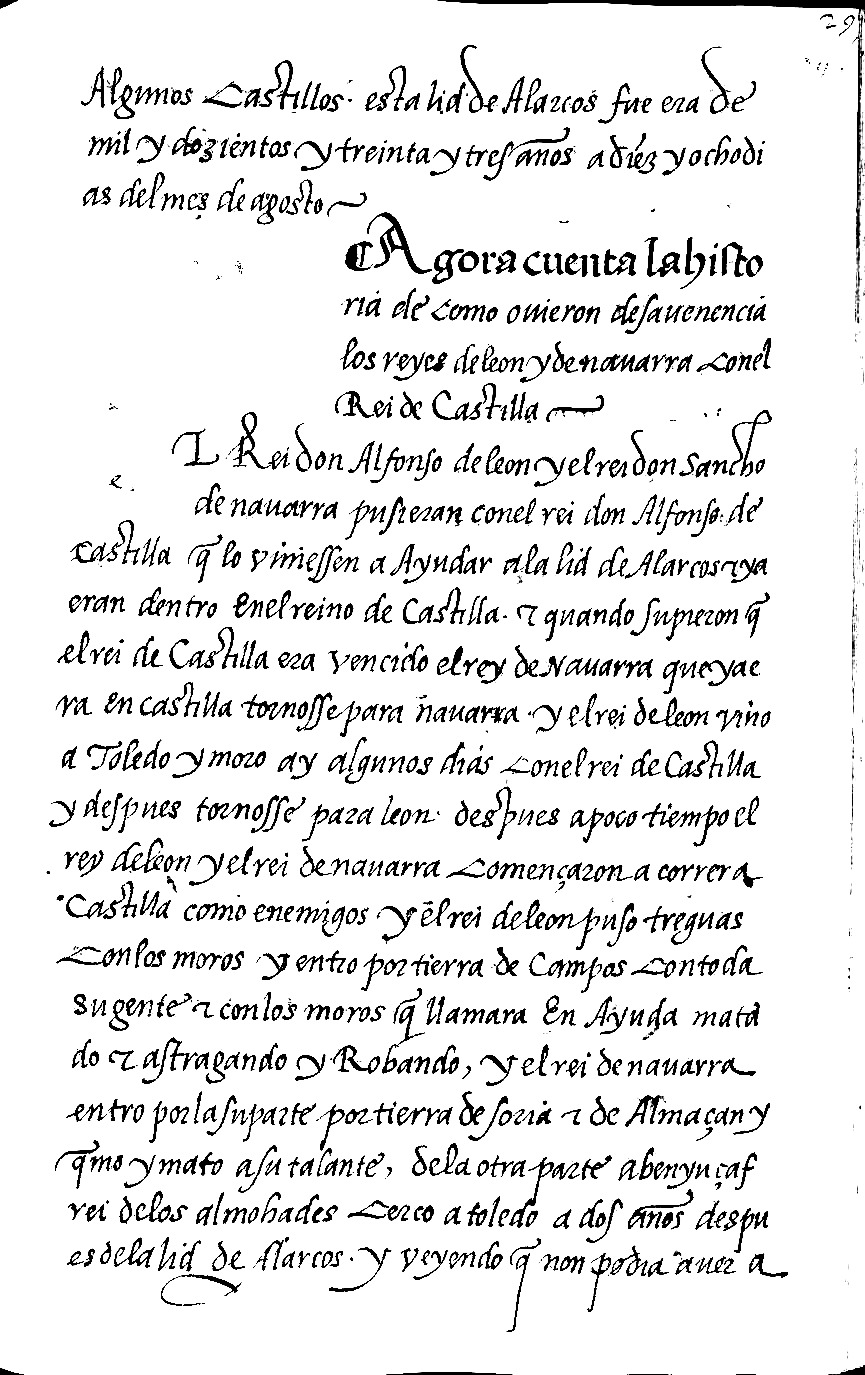 29
Algunos Castillos. esta lid de Alarcos fue era de
mil y dozientos y treinta y tres años a diez y ocho di
as del mes de agosto
Agora cuenta la histo
ria de como ouieron desauenencia
los reyes de leon y de nauarra con el
Rei de Castilla
L Rei don Alfonso de leon y el rei don Sancho
e.
de nauarra pusieran con el rei don Alfonso de
Castilla q̃ lo viniessen a Ayudar a la lid de Alarcos ⁊ ya
eran dentro En el reino de Castilla. ⁊ quando supieron q̃
el rei de Castilla era vencido el rey de Nauarra que ya e
ra En castilla tornosse para nauarra. y el rei de leon vino
a Toledo y moro ay algunos dias con el rei de Castilla
y despues tornosse para leon. despues a poco tiempo el
rey de leon y el rei de nauarra començaron a correr a
Castilla como enemigos y el rei de leon puso treguas
con los moros y entro por tierra de Campos con toda
su gente ⁊ con los moros q̃ llamara En Ayuda mata
do ⁊ astragando y Robando, y el rei de nauarra
entro por la su parte por tierra de soria ⁊ de Almaçan y
q̃mo y mato a su talante, de la otra parte abenyuçaf
rei de los almohades cerco a toledo a dos años despu
es de la lid de Alarcos. y veyendo q̃ non podia auer a